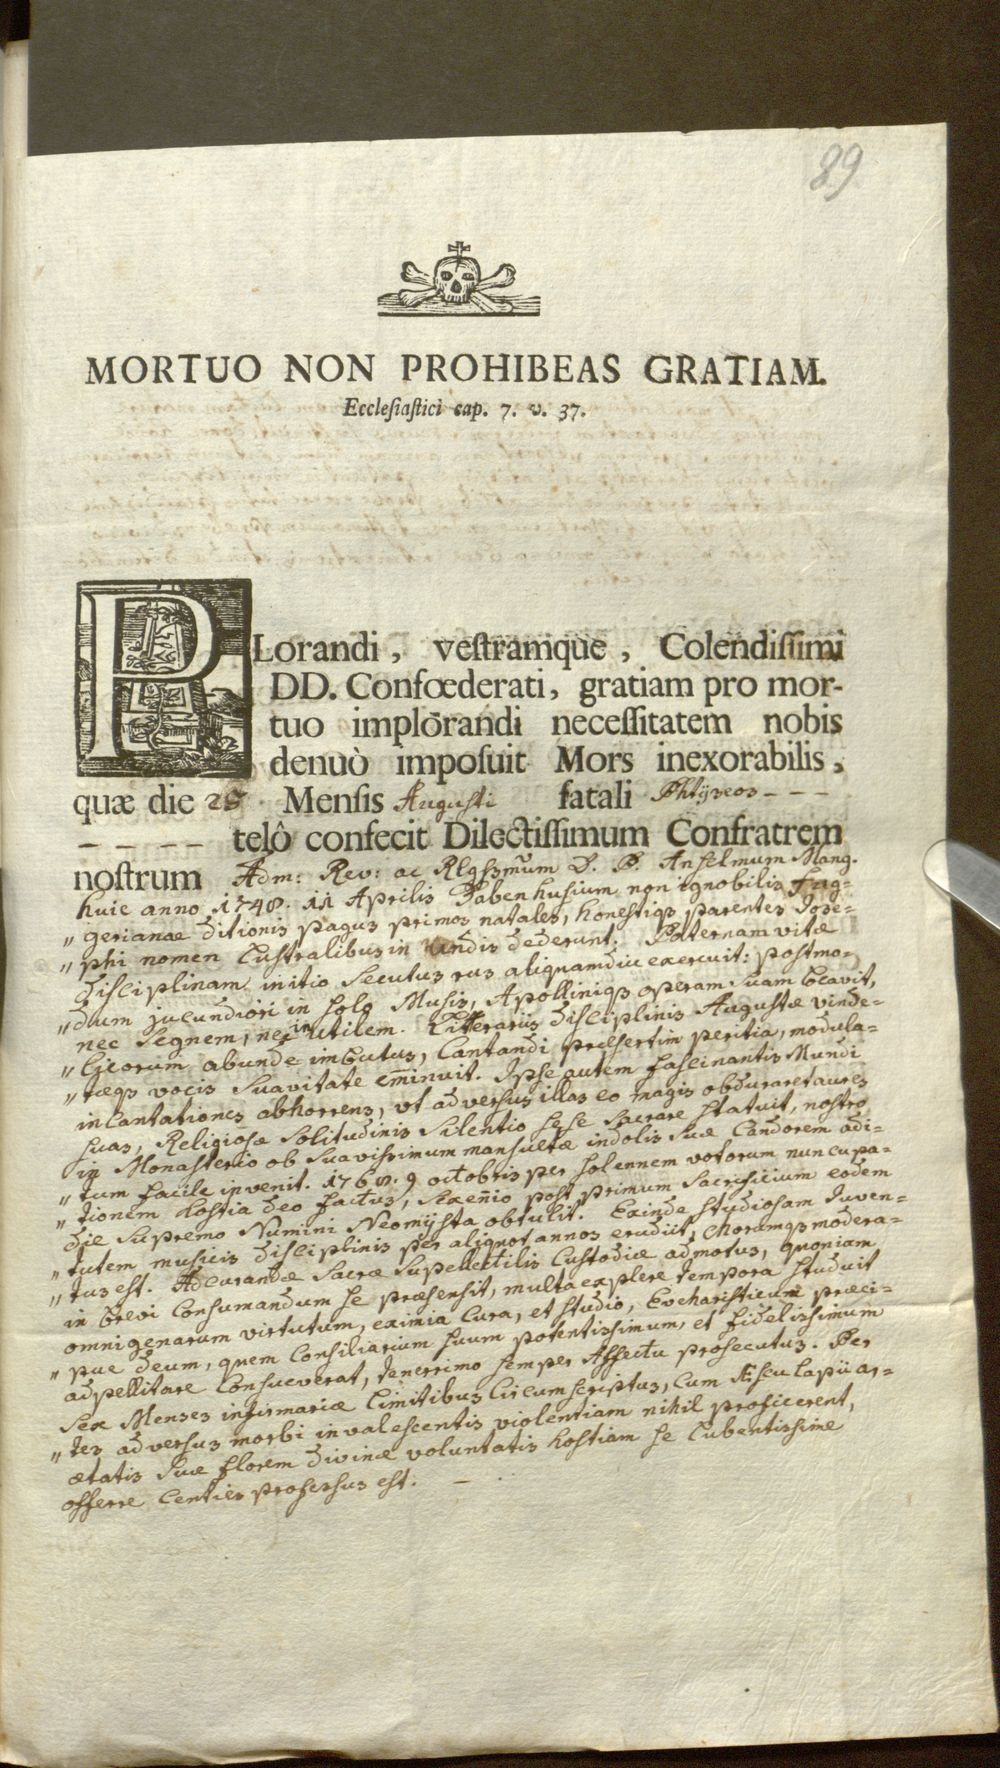 89
MORTUO NON PROHIBEAS GRATIAM.
Ecclesiastici cap. 7. v. 37.
PLorandi, vestramque, Colendissimi
DD. Confœderati, gratiam pro mor-
tuo implorandi necessitatem nobis
denuò imposuit Mors inexorabilis,
quæ die 28 Mensis Augusti fatali Phtÿseos - - -
- - - - telô confecit Dilectissimum Confratrem
nostrum Adm: Rev: ac Rlgssmum D. P. Anselmum Mang.
huic anno 1748. 11 Aprilis Babenhusium non ignobilis Fug-
" gerianae ditionis pagus primos natales, honestiqs parentes Jose-
" phi nomen Lustralibus in Undis dederunt. Paternam vitæ
disciplinam initio secutus rus aliquamdiu exercuit: postmo-
" dum jucundiori in solo Musis, Apolliniqs operam suam locavit,
nec segnem, nec inutilem. Litterariis disciplinis Augustæ Vinde-
" licorum abunde imbutus, Cantandi præsertim peritia, modula-
" tæqs vocis suavitate eminuit. Ipse autem fascinantis Mundi
incantationes abhorrens, ut adversus illas eo magis obduraret aures
suas, Religiosæ solitudinis silentio sese sacrare statuit, nostro
in Monasterio ob suavissimum mansuetæ indolis suæ Candorem adi-
" tum facile invenit. 1768. 9 octobris per solennem votorum nuncupa-
" tionem hostia Deo factus, sexenio post primum Sacrificium eodem
die supremo Numini Neomÿsta obtulit. Exinde studiosam Juven-
" tutem musicis disciplinis per aliquot annos erudiit, chorumqs modera-
" tus est. Ad curandæ Sacræ Supellectilis Custodiæ admotus, quoniam
in brevi consumandum se præsensit, multa explere tempora studuit
omnigenarum virtutum, eximia Cura, et studio, Eucharisticum præci-
" pue Deum, quem Consiliarium suum potentissimum, et fidelissimum
adpellitare Consueverat, tenerrimo semper Affectu prosecutus. Per
sex Menses infirmariæ limitibus Circumscriptus, Cum Æsculapii ar-
" tes adversus morbi invalescentis violentiam nihil proficerent,
ætatis suæ florem divinæ voluntatis hostiam se lubentissime
offerre professus est. -